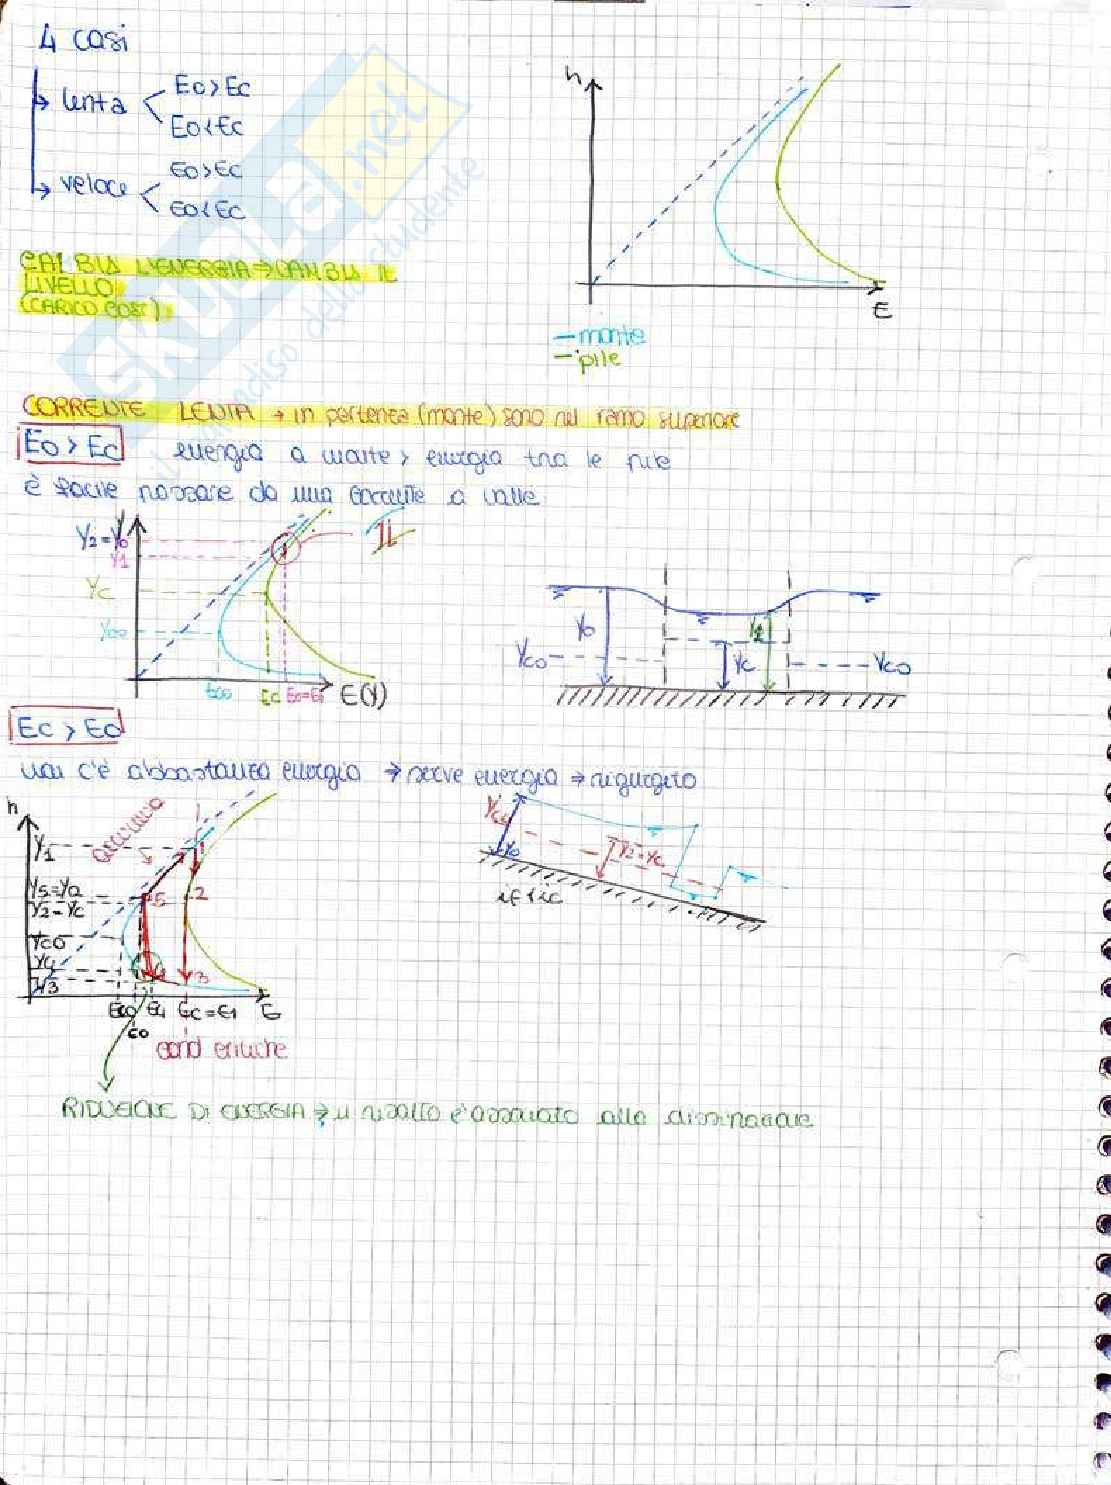 4 casi
→ lenta < E0 > Ec
E0 < Ec
→ veloce < E0 > Ec
E0 < Ec
h
E
CAMBIA L'ENERGIA → CAMBIA IL
LIVELLO
(CARICO COST)
— monte
— pile
SKUOLA.net
CORRENTE LENTA → in partenza (monte) sono nel ramo superiore
E0 > Ec energia a monte > energia tra le pile
è facile passare da una corrente a valle
Y2=Y0
Y1
Yc
Yco
Eco Ec E0=E1 E(Y)
Y0
Yco
Yc
Yco
Ec > E0
non c'è abbastanza energia → serve energia → rigurgito
h
Y1
Y5=Y0
Y2=Yc
Yco
Y4
Y3
5
2
4
3
Eco E4 Ec=E1 E
E0
cond critiche
Yco
Y0
Y2=Yc
if<ic
RIDUZIONE DI ENERGIA → il risalto è associato alla dissipazione